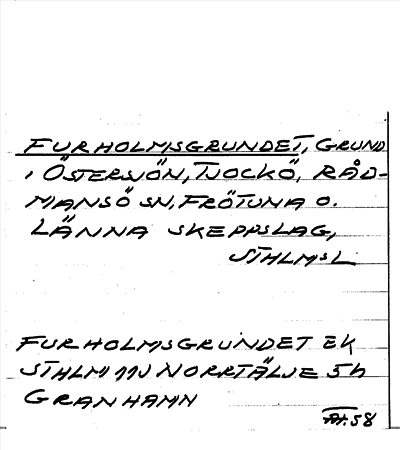 FURHOLMSGRUNDET, GRUND
I ÖSTERSJÖN, TJOCKÖ, RÅD-
MANSÖ SN, FRÖTUNA O.
LÄNNA SKEPPSLAG,
STHLMSL
FURHOLMSGRUNDET EK
STHLM 11J NORRTÄLJE 5h
GRANHAMN
58